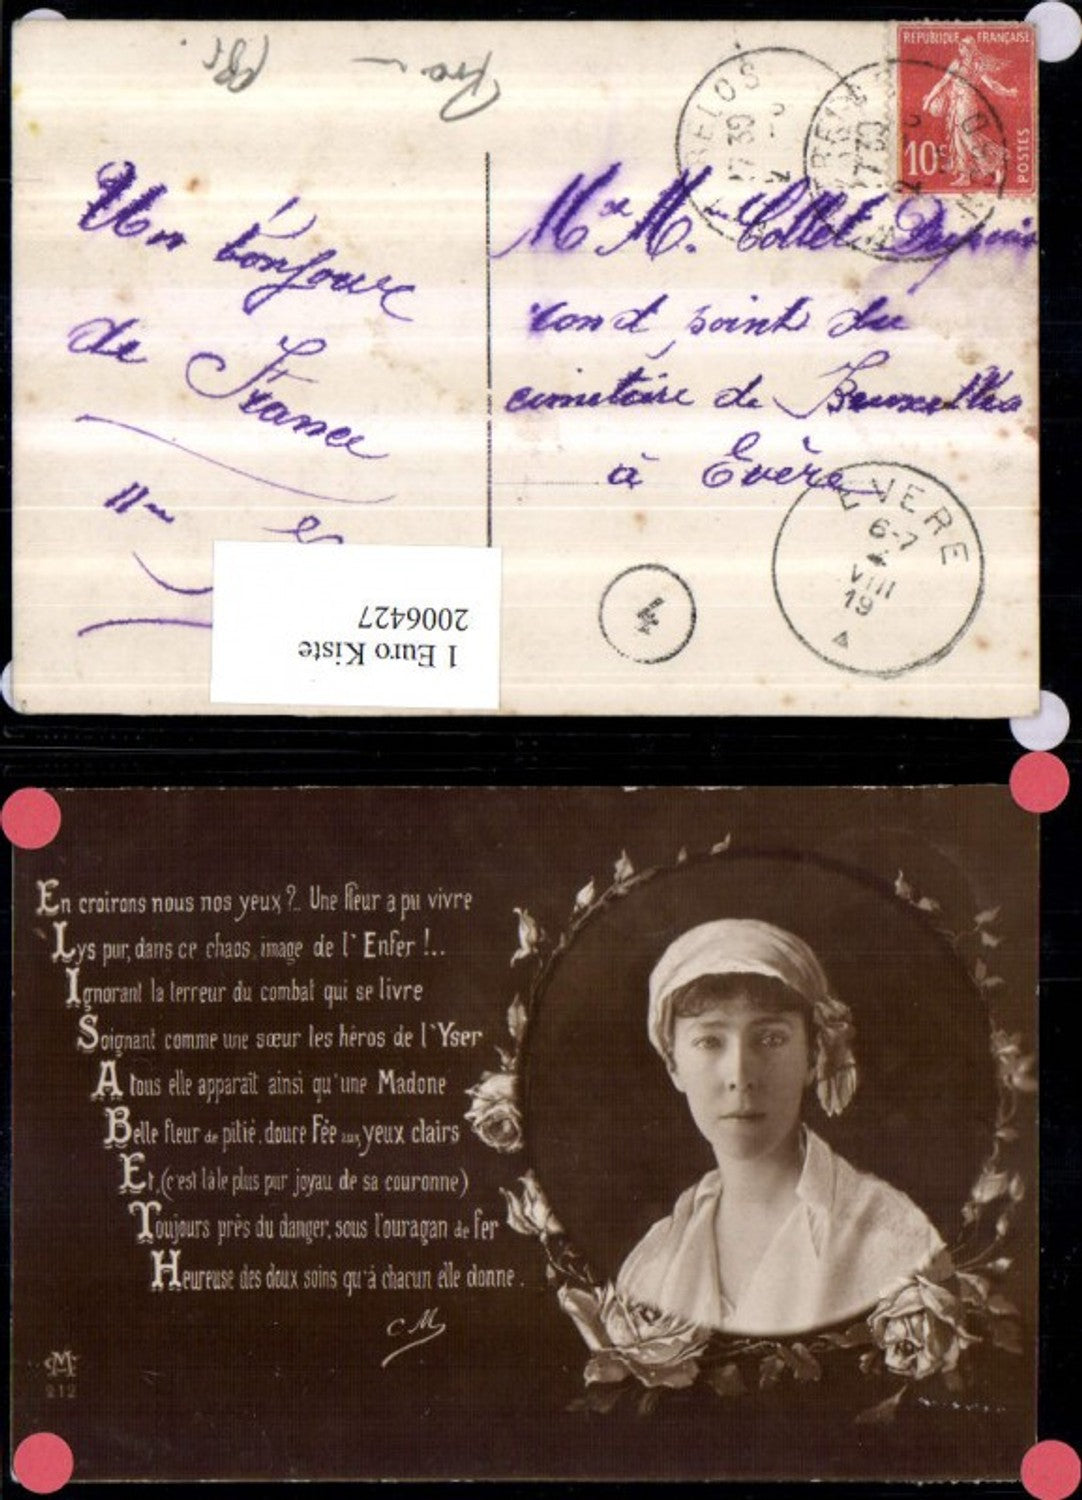 REPUBLIQUE FRANÇAISE
10c
POSTES
17 30
17 30
Un bonjour
de France
Mr Me Collet
cond
du
cimetière de Bruxelles
à Evère
EVERE
6-7
4
VIII
19
4
1 Euro Kiste
2006427
En croirons nous nos yeux ?.. Une fleur a pu vivre
Lys pur, dans ce chaos, image de l'Enfer !..
Ignorant la terreur du combat qui se livre
Soignant comme une sœur les héros de l'Yser
A tous elle apparaît ainsi qu'une Madone
Belle fleur de pitié, douce Fée aux yeux clairs
Et, (c'est là le plus pur joyau de sa couronne)
Toujours près du danger, sous l'ouragan de fer
Heureuse des doux soins qu'à chacun elle donne.
CM
M
212